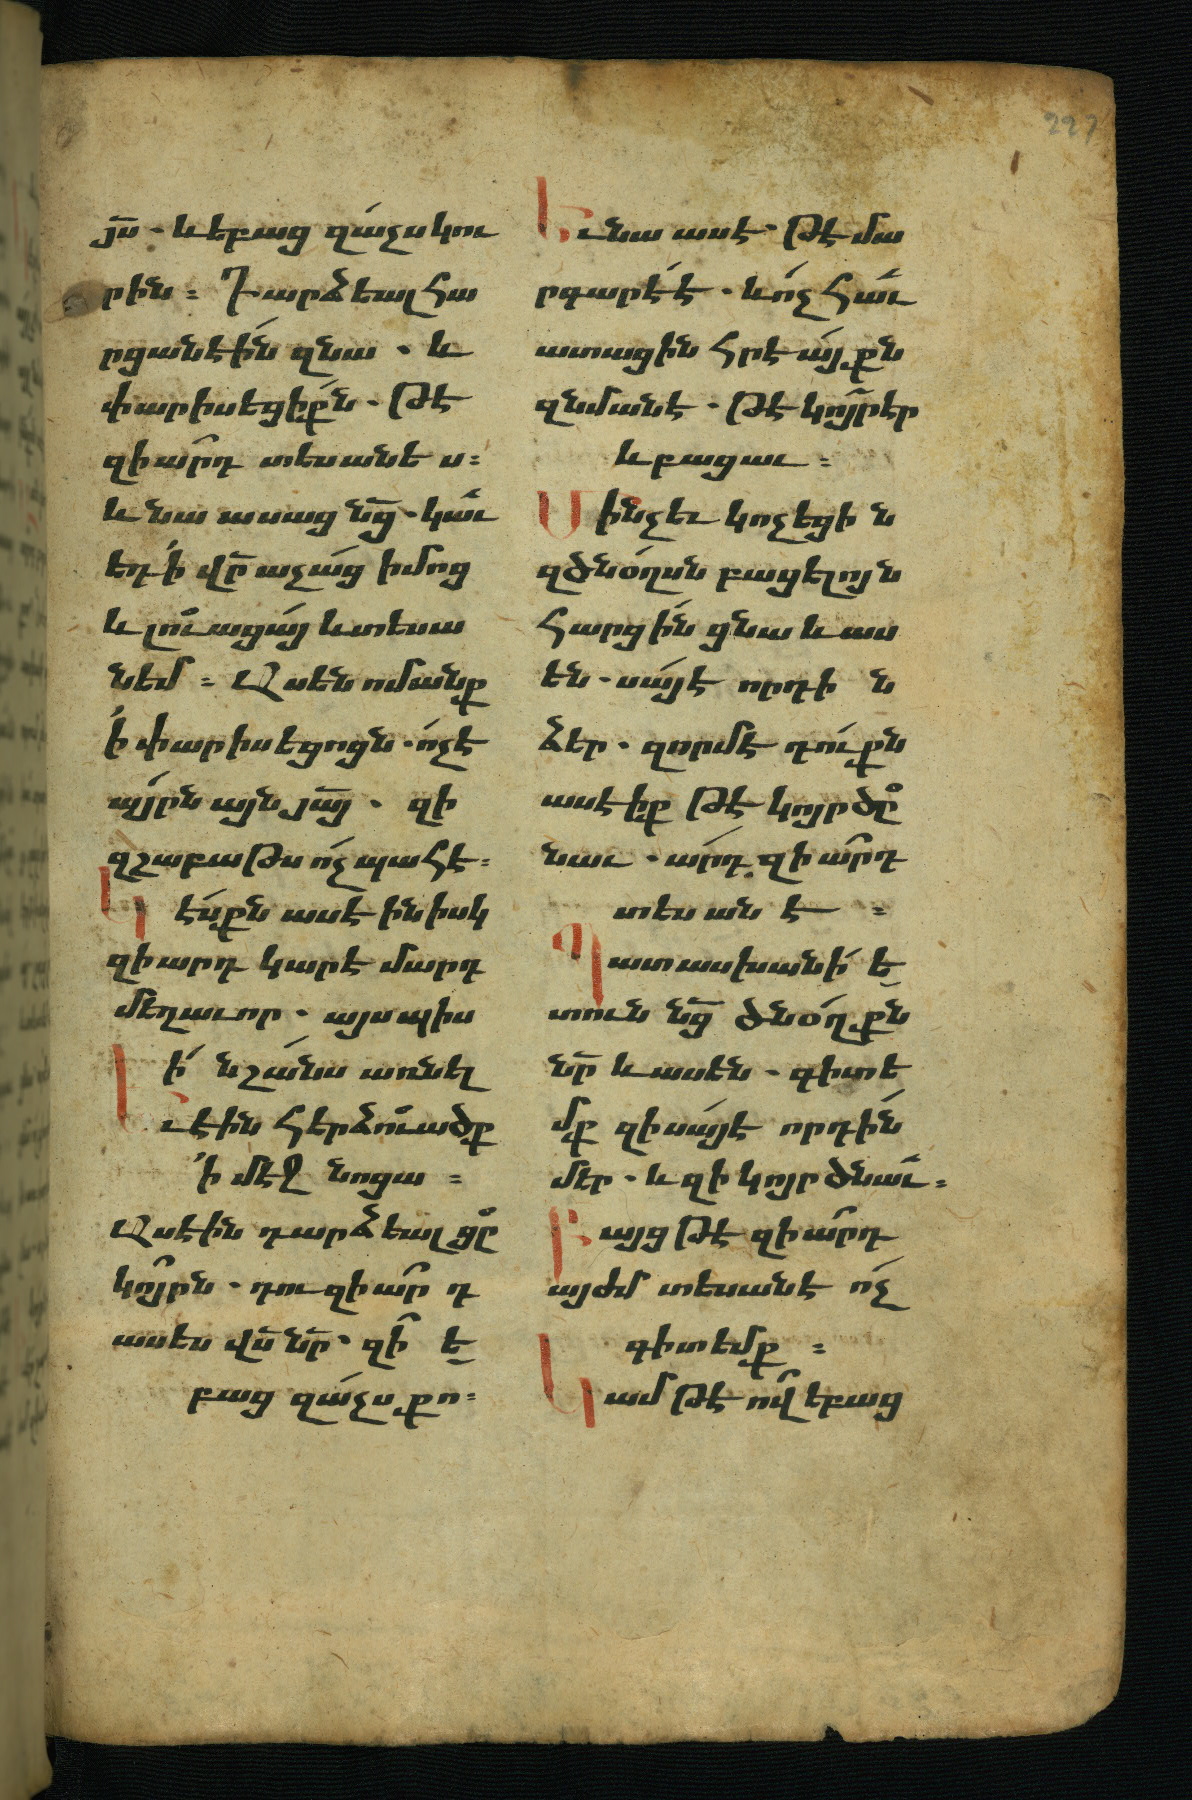 յս · և եբաց զաչս կու
րին ։ Դարձեալ հա
րցանէին զնա · և
փարիսեցիքն · թէ
զիարդ տեսանես ։
և նա ասաց նց · կաւ
եդ ՚ի վր աչաց իմոց
և լուացայ և տեսա
նեմ ։ Ասեն ոմանք
՚ի փարիսեցոցն · ոչ է
այրն այն յայ · զի
զշաբաթս ոչ պահէ ։
Կէսքն ասէին իսկ
զիարդ կարէ մարդ
մեղաւոր · այսպիս
ի նշանս առնել
Եւ էին հերձուածք
՚ի մէջ նոցա ։
Ասէին դարձեալ ցը
կոյրն · դու զիարդ
ասես վս նր · զի ե
բաց զաչս քո ։
Եւ նա ասէ · թէ մա
րգարէ է · և ոչ հաւ
ատացին հրէայքն
զնմանէ · թէ կոյր էր
և բացաւ ։
Մինչև կոչեցին
զծնօղսն բացելոյն
Հարցին ցնա և աս
են · սայ է որդին
ձեր · զորմէ դուքն
ասէիք թէ կոյր ծը
նաւ · արդ զիարդ
տեսանէ ։
Պատասխանի ե
տուն նց ծնօղքն
նր և ասեն · գիտե
մք զի սայ է որդին
մեր · և զի կոյր ծնաւ ։
Բայց թէ զիարդ
այժմ տեսանէ ոչ
գիտեմք ։
Կամ թէ ով եբաց
227